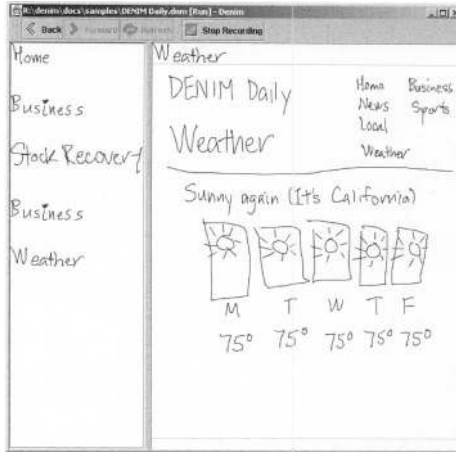 K:\denim\docs\samples\DENIM Daily.dnm [Run] - Denim
Back Forward Refresh Stop Recording
Home
Business
Stock Recovery
Business
Weather
Weather
DENIM Daily
Weather
Home Business
News Sports
Local
Weather
Sunny again (It's California)
M T W T F
75° 75° 75° 75° 75°